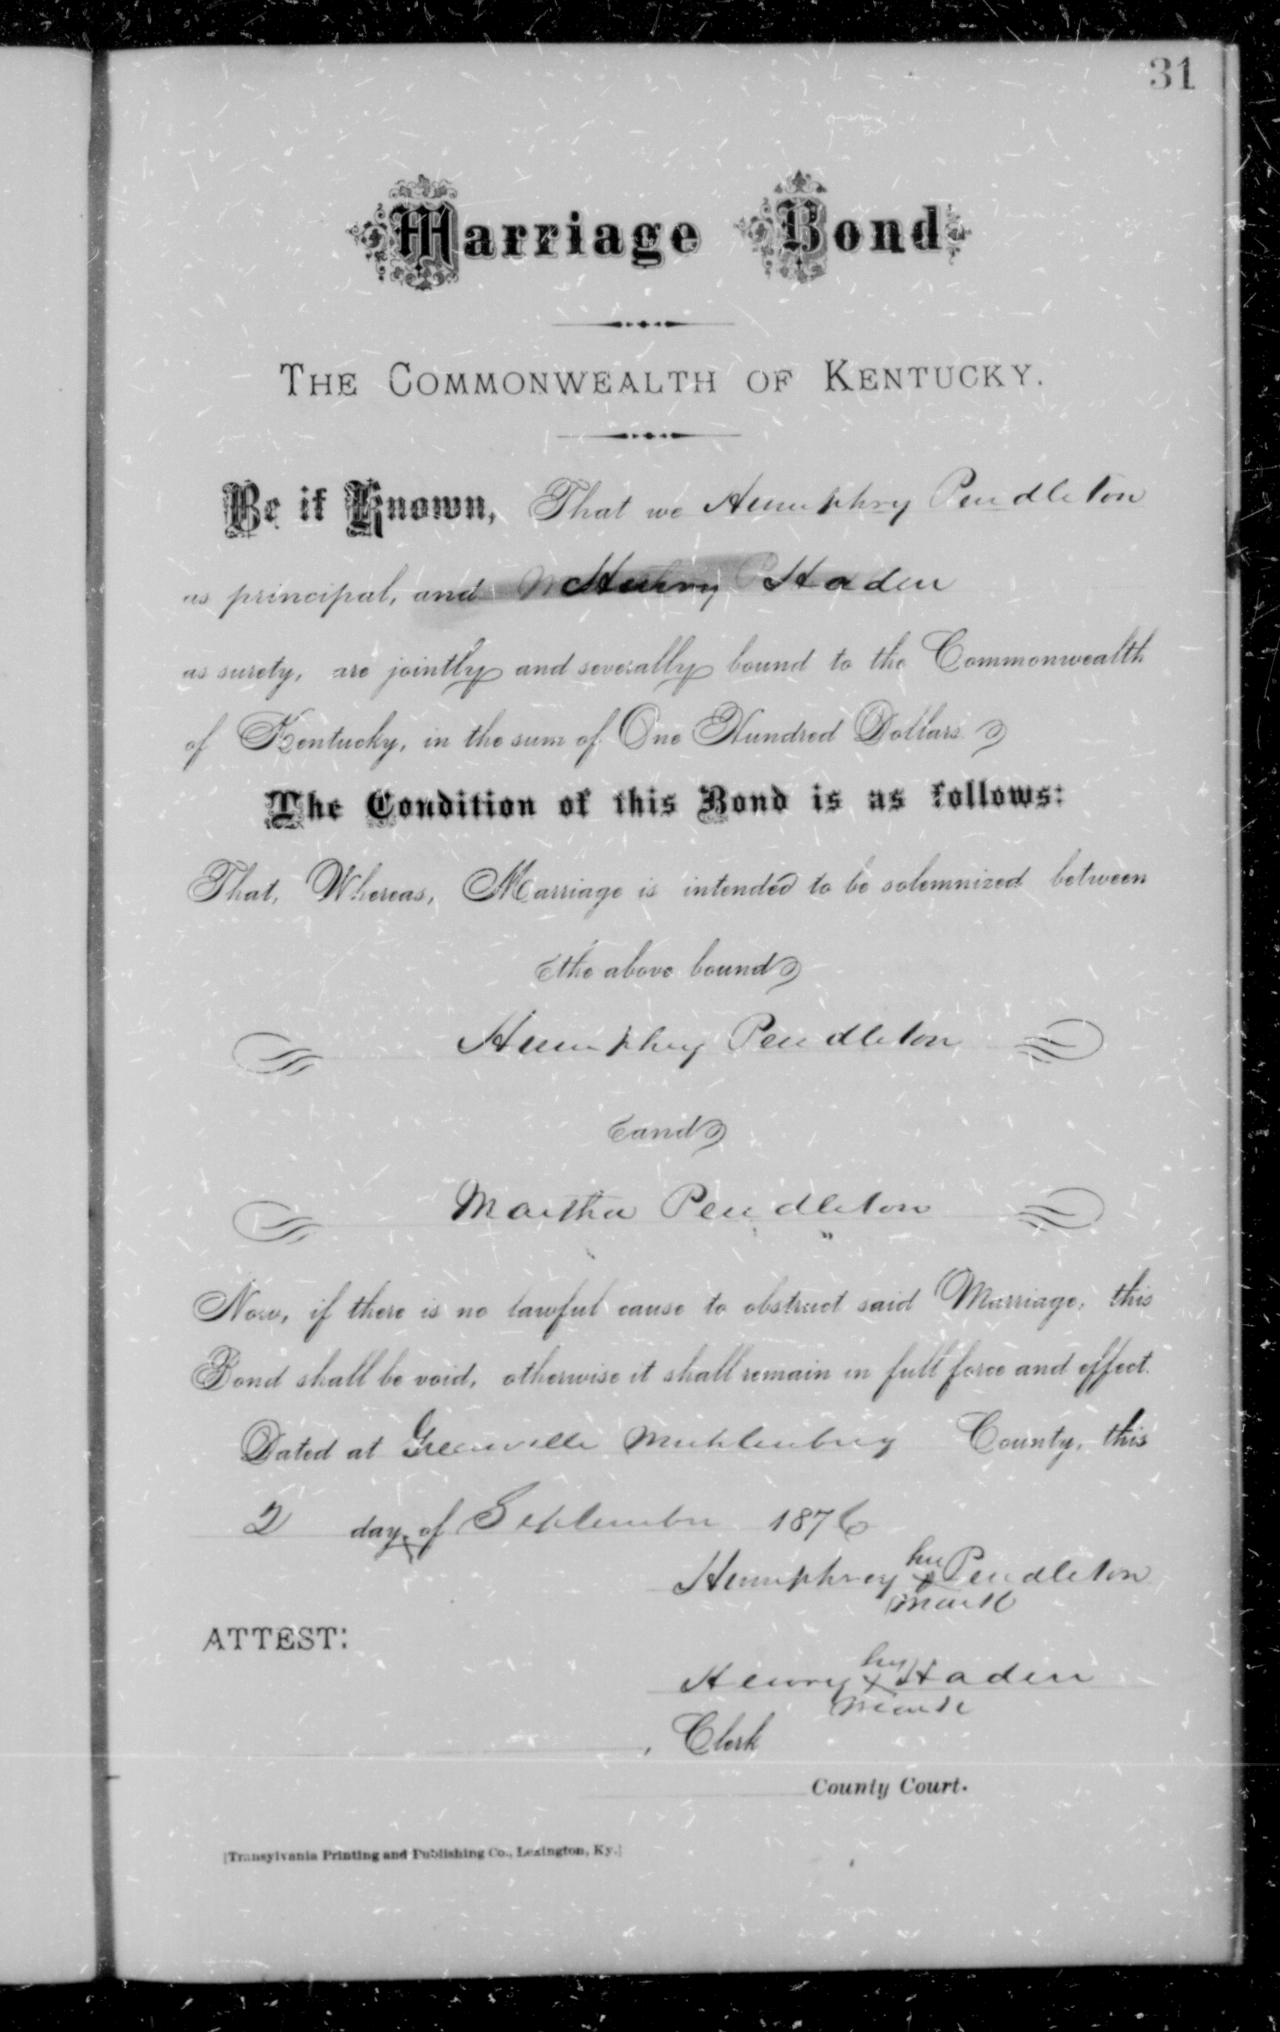 31
Marriage Bond
THE COMMONWEALTH OF KENTUCKY.
Be it Known, That we Humphry Pendleton
as principal, and Henry Haden
as surety, are jointly and severally bound to the Commonwealth
of Kentucky, in the sum of One Hundred Dollars.
The Condition of this Bond is as follows:
That, Whereas, Marriage is intended to be solemnized between
the above bound
Humphry Pendleton
and
Martha Pendleton
Now, if there is no lawful cause to obstruct said Marriage, this
Bond shall be void, otherwise it shall remain in full force and effect.
Dated at Greenville Muhlenburg County, this
2 day of September 1876
his
Humphrey x Pendleton
mark
ATTEST:
his
Henry x Haden
mark
, Clerk
County Court.
[Transylvania Printing and Publishing Co., Lexington, Ky.]